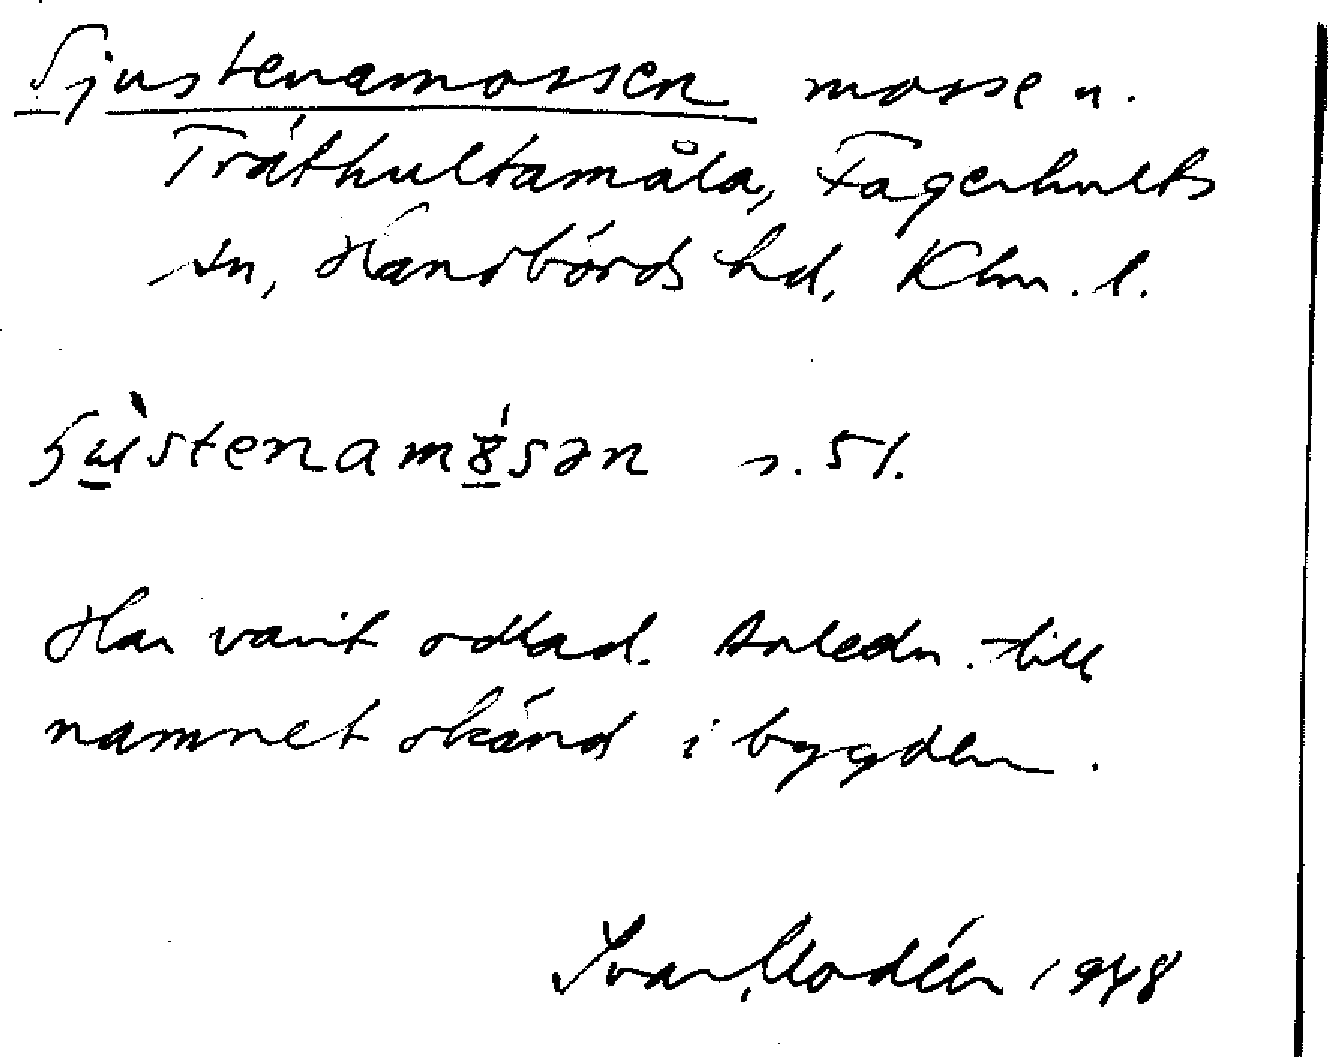 Sjustenamossen mosse u.
Träthultamåla, Fagerhults
sn, Handbörds hd, Klm. l.
s. 51.
Har varit odlad. Anledn. till
namnet okänd i bygden.
Ivar Modéer 1948